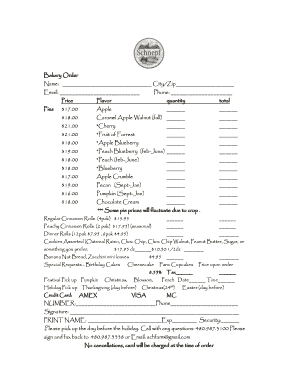 Schnepf
Bakery Order
Name: City/Zip
Email: Phone:
Price Flavor quantity total
Pies $17.00 Apple
$18.00 Caramel Apple Walnut (fall)
$21.00 *Cherry
$21.00 * Fruit of Forrest
$18.00 *Apple Blueberry
$19.00 *Peach Blueberry (feb-June)
$18.00 *Peach (feb-June)
$18.00 *Blueberry
$17.00 Apple Crumble
$19.00 Pecan (Sept-Jan)
$16.00 Pumpkin (Sept-Jan)
$18.00 Chocolate Cream
*** Some pie prices will fluctuate due to crop .
Regular Cinnamon Rolls (4pak)
Peachy Cinnamon Rolls (seasonal)
Dinner Rolls
Cookies Assorted (Oatmeal Raisin, Choc Chip, Choc Chip Walnut, Peanut Butter, Sugar, or
something you prefer.
Banana Nut Bread, Zucchini mini loaves
Special Requests - Birthday Cakes Cheesecake Fun Cupcakes Price upon order
Tax
Festival Pick up Pumpkin Christmas Blossom Peach Date Time
Holiday Pick up Thanksgiving (day before) Christmas (24th) Easter (day before)
Credit Card: AMEX VISA MC
NUMBER: Phone
Signature:
PRINT NAME: Exp. Security
Please pick up the day before the holiday. Call with any questions: 480.987.3100 Please
sign and fax back to or Email
No cancellations, card will be charged at the time of order